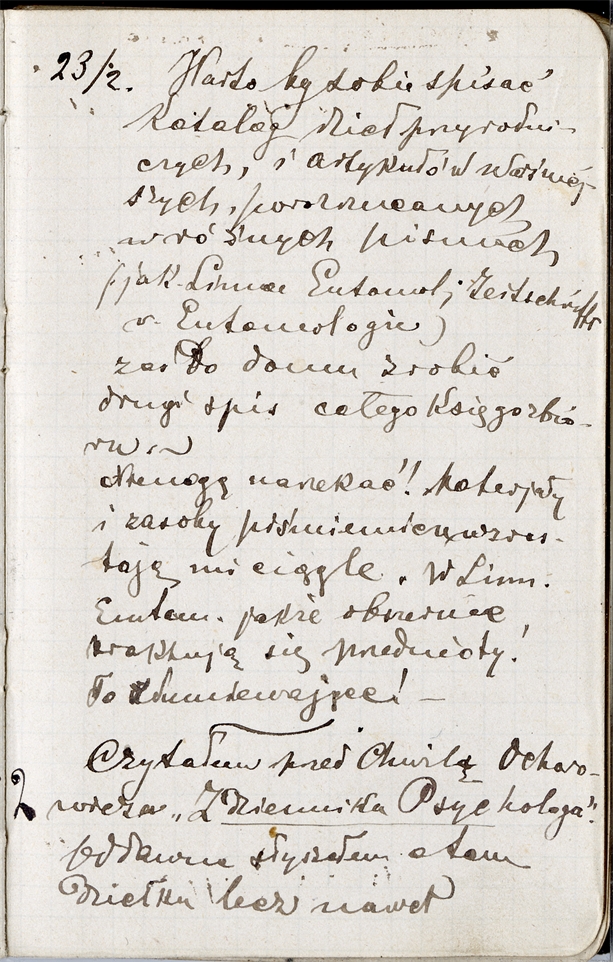 23/2. Warto by sobie spisać
katalog dzieł przyrodni-
czych, i artykułów ważniej-
szych, porozrzucanych
w różnych pismach
(jak Linnea Entomol; Zeitschrift
v. Entomologie)
zaś do domu zrobić
drugi spis całego księgozbio-
ru.
Niemogę narekać! Materjały
i zasoby piśmienicze wzras-
tają mi ciągle. W Linn.
Entom. jakże obszernie
traktują się przedmioty!
To zdumiewające! —
Czytałem przed chwilą Ochoro-
wicza „Z dziennika Psychologa".
Od dawna słyszałem o tem
dziełku lecz nawet